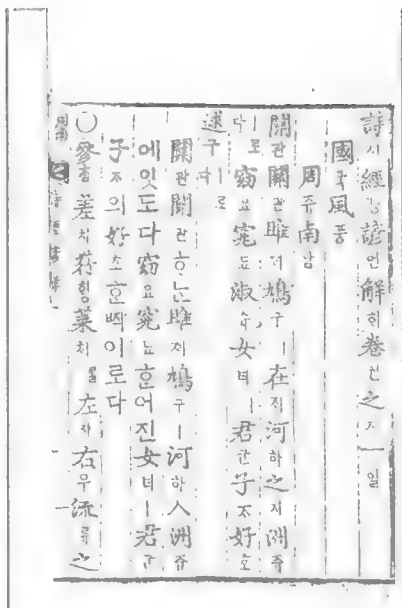 詩시經경諺언解ᄒᆡ卷권之지一일
國국風풍
周쥬南남
關관關관雎져鳩구ㅣ在ᄌᆡ河하之지洲쥬
ㅣ로다窈요窕됴淑슉女녀ㅣ君군子ᄌᆞ好호
逑구ㅣ로다
關관關관ᄒᆞᄂᆞᆫ雎져鳩구ㅣ河하ㅅ洲쥬
에잇도다窈요窕됴ᄒᆞᆫ어진女녀ㅣ君군
子ᄌᆞ의好호ᄒᆞᆫ ᄧᅡᆨ이로다
○參ᄎᆞᆷ差치荇ᄒᆡᆼ菜ᄎᆡ를左좌右우流류之
周南